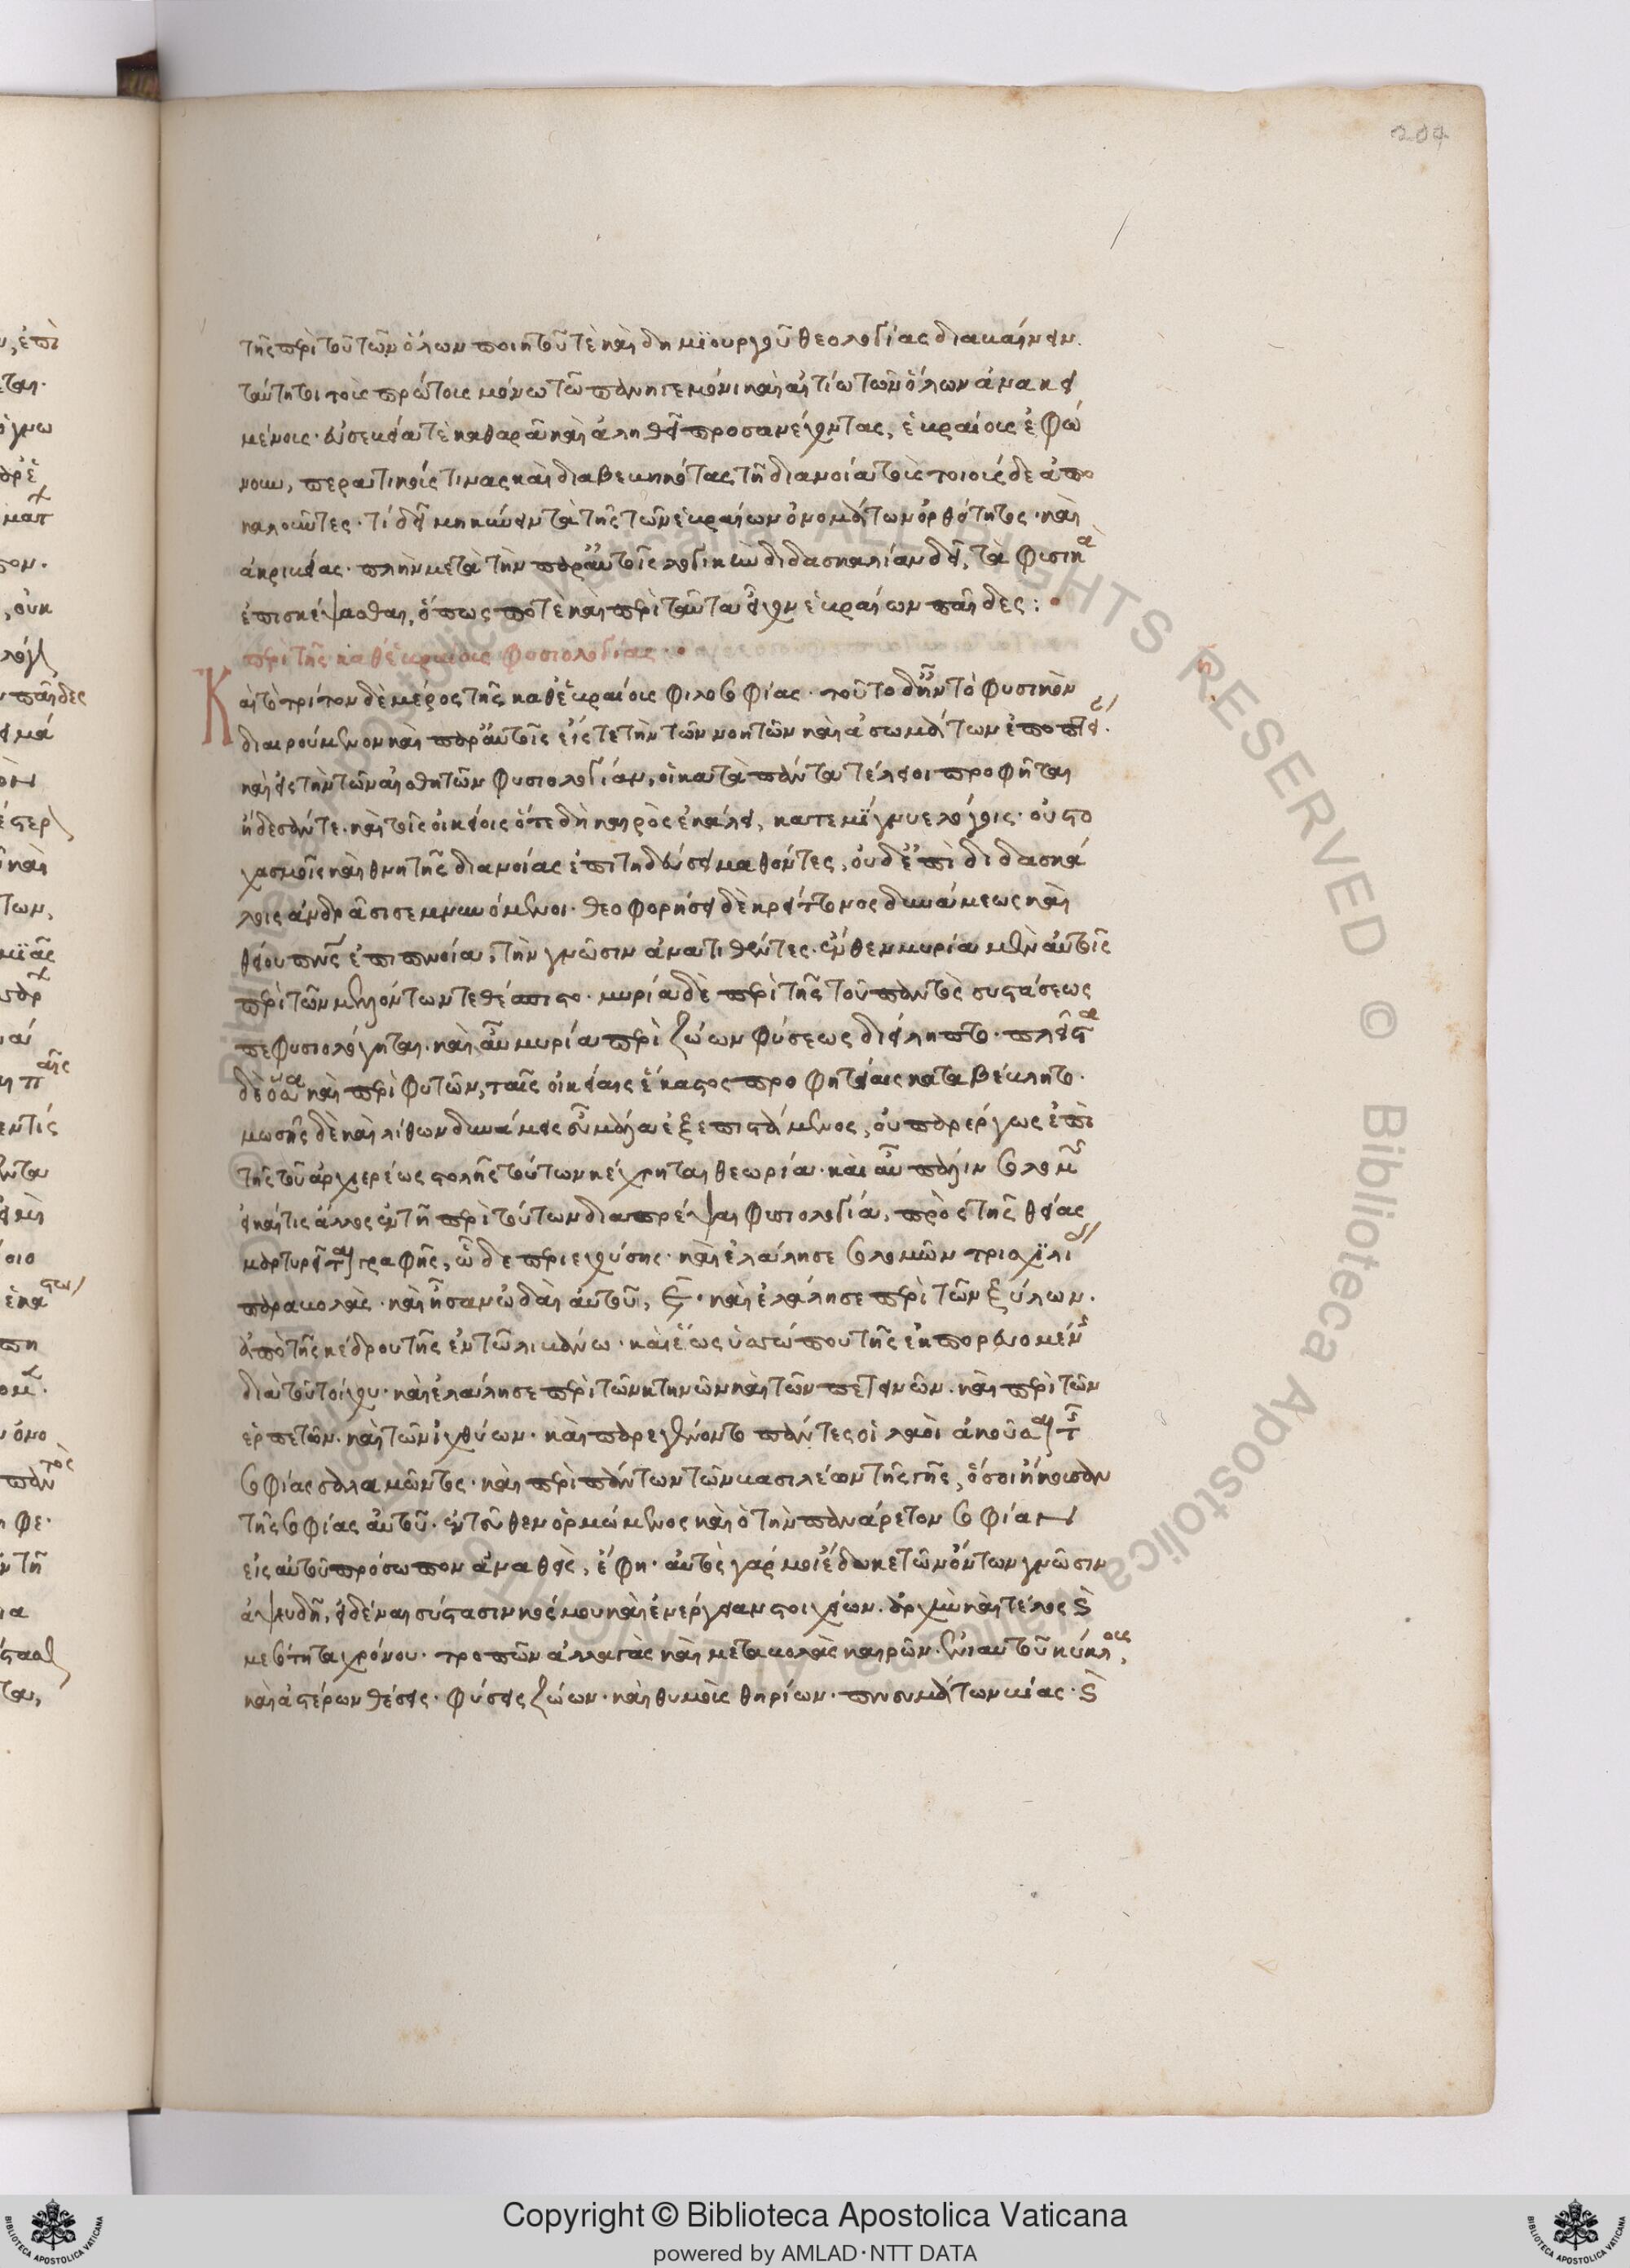 204
τῆς περὶ τοῦ τῶν ὅλων ποιητοῦ τὲ καὶ δημϊουργοῦ θεολογίας διαβαίνειν.
ταύτη τοι τοῖς πρώτοις μόνω τῶ πανηγεμόνι καὶ αἰτίω τῶν ὅλων ἀνακει
μένοις· εὐσεβεία τὲ καθαρᾶ καὶ ἀληθεῖ προσανέχοντας, ἑβραίους ἐφώ
νουν, περατικούς τινας καὶ διαβεβηκότας τῆ διανοία τοὺς τοιούσδε ἀπο
καλοῦντες· τί δεῖ μηκύνειν τὰ τῆς τῶν ἑβραίων ὀνομάτων ὀρθότητος· καὶ
ἀκριβείας· πλὴν μετὰ τὴν παρ' αὐτοῖς λογικὴν διδασκαλίαν δεῖ, τὰ φυσικὰ
ἐπισκέψασθαι, ὅπως ποτὲ καὶ περὶ ταῦτα εἶχον ἑβραίων παῖδες:
περὶ τῆς καθ' ἑβραίους φυσιολογίας·
η
Καὶ τὸ τρίτον δὲ μέρος τῆς καθ' ἑβραίους φιλοσοφίας· τοῦτο δ' ἦν τὸ φυσικὸν
διαιρούμενον καὶ παρ' αὐτοῖς εἴς τε τὴν τῶν νοητῶν καὶ ἀσωμάτων ἐποπτεί.
καὶ εἰς τὴν τῶν αἰσθητῶν φυσιολογίαν, οἱ κατὰ πάντα τέλειοι προφῆται
ἤδεσάν τε. καὶ τοῖς οἰκείοις ὅτε δὴ καιρὸς ἐκάλει, κατεμίγνυε λόγοις· οὐ στο
χασμοῖς καὶ θνητῆς διανοίας ἐπιτηδεύσει μαθόντες, οὐδ' ἐπὶ διδασκά
λοις ἀνδράσι σεμνυνόμενοι· θεοφορήσει δὲ κρείττονος δυνάμεως καὶ
θείου πνς ἐπιπνοία, τὴν γνῶσιν ἀνατιθέντες· ἔνθεν μυρία μὲν αὐτοῖς
περὶ τῶν μελλόντων τεθέσπιστο· μυρία δὲ περὶ τῆς τοῦ παντὸς συστάσεως
πεφυσιολόγηται. καὶ αὖ μυρία περὶ ζώων φύσεως διείληπτο· πλεῖστα
δὲ ὅσα καὶ περὶ φυτῶν, ταῖς οἰκείαις ἕκαστος προφητείαις καταβέβλητο·
μωσῆς δὲ καὶ λίθων δυνάμεις εὖ μάλα ἐξεπιστάμενος, οὐ παρέργως ἐπὶ
τῆς τοῦ ἀρχιερέως στολῆς τούτων κέχρηται θεωρία· καὶ αὖ πάλιν σολομ
εἰ καί τις ἄλλος ἐν τῆ περὶ τούτων διαπρέψαι φυσιολογία, πρὸς τῆς θείας
μαρτυρεῖται γραφῆς, ὧδε περιεχούσης· καὶ ἐλάλησε σολομῶν τρισχϊλί
παραβολὰς· καὶ ἦσαν ὠδαὶ αὐτοῦ, ͵ε· καὶ ἐλάλησε περὶ τῶν ξύλων.
ἀπὸ τῆς κέδρου τῆς ἐν τῶ λιβάνω· καὶ ἕως ὑσσώπου τῆς ἐκπορευομέν
διὰ τοῦ τοίχου· καὶ ἐλάλησε περὶ τῶν κτηνῶν καὶ τῶν πετεινῶν. καὶ περὶ τῶν
ἑρπετῶν. καὶ τῶν ἰχθύων· καὶ παρεγένοντο πάντες οἱ λαοὶ ἀκοῦσαι τ
σοφίας σαλαμῶντος· καὶ περὶ πάντων τῶν βασιλέων τῆς γῆς, ὅσοι ἤκουσαν
τῆς σοφίας αὐτοῦ. ἐντεῦθεν ὁρμώμενος καὶ ὁ τὴν πανάρετον σοφίαν
εἰς αὐτοῦ πρόσωπον ἀναθεὶς, ἔφη· αὐτὸς γάρ μοι ἔδωκε τῶν ὄντων γνῶσιν
ἀψευδῆ, εἰδέναι σύστασιν κόσμου καὶ ἐνέργειαν στοιχείων. ἀρχὴν καὶ τέλος ϗ
μεσότητα χρόνου· τροπῶν ἀλλαγὰς καὶ μεταβολὰς καιρῶν. ἐνιαυτοῦ κύκλους,
καὶ ἀστέρων θέσεις· φύσεις ζώων· καὶ θυμοὺς θηρίων· πνευμάτων βίας· ϗ
Copyright © Biblioteca Apostolica Vaticana
powered by AMLAD·NTT DATA